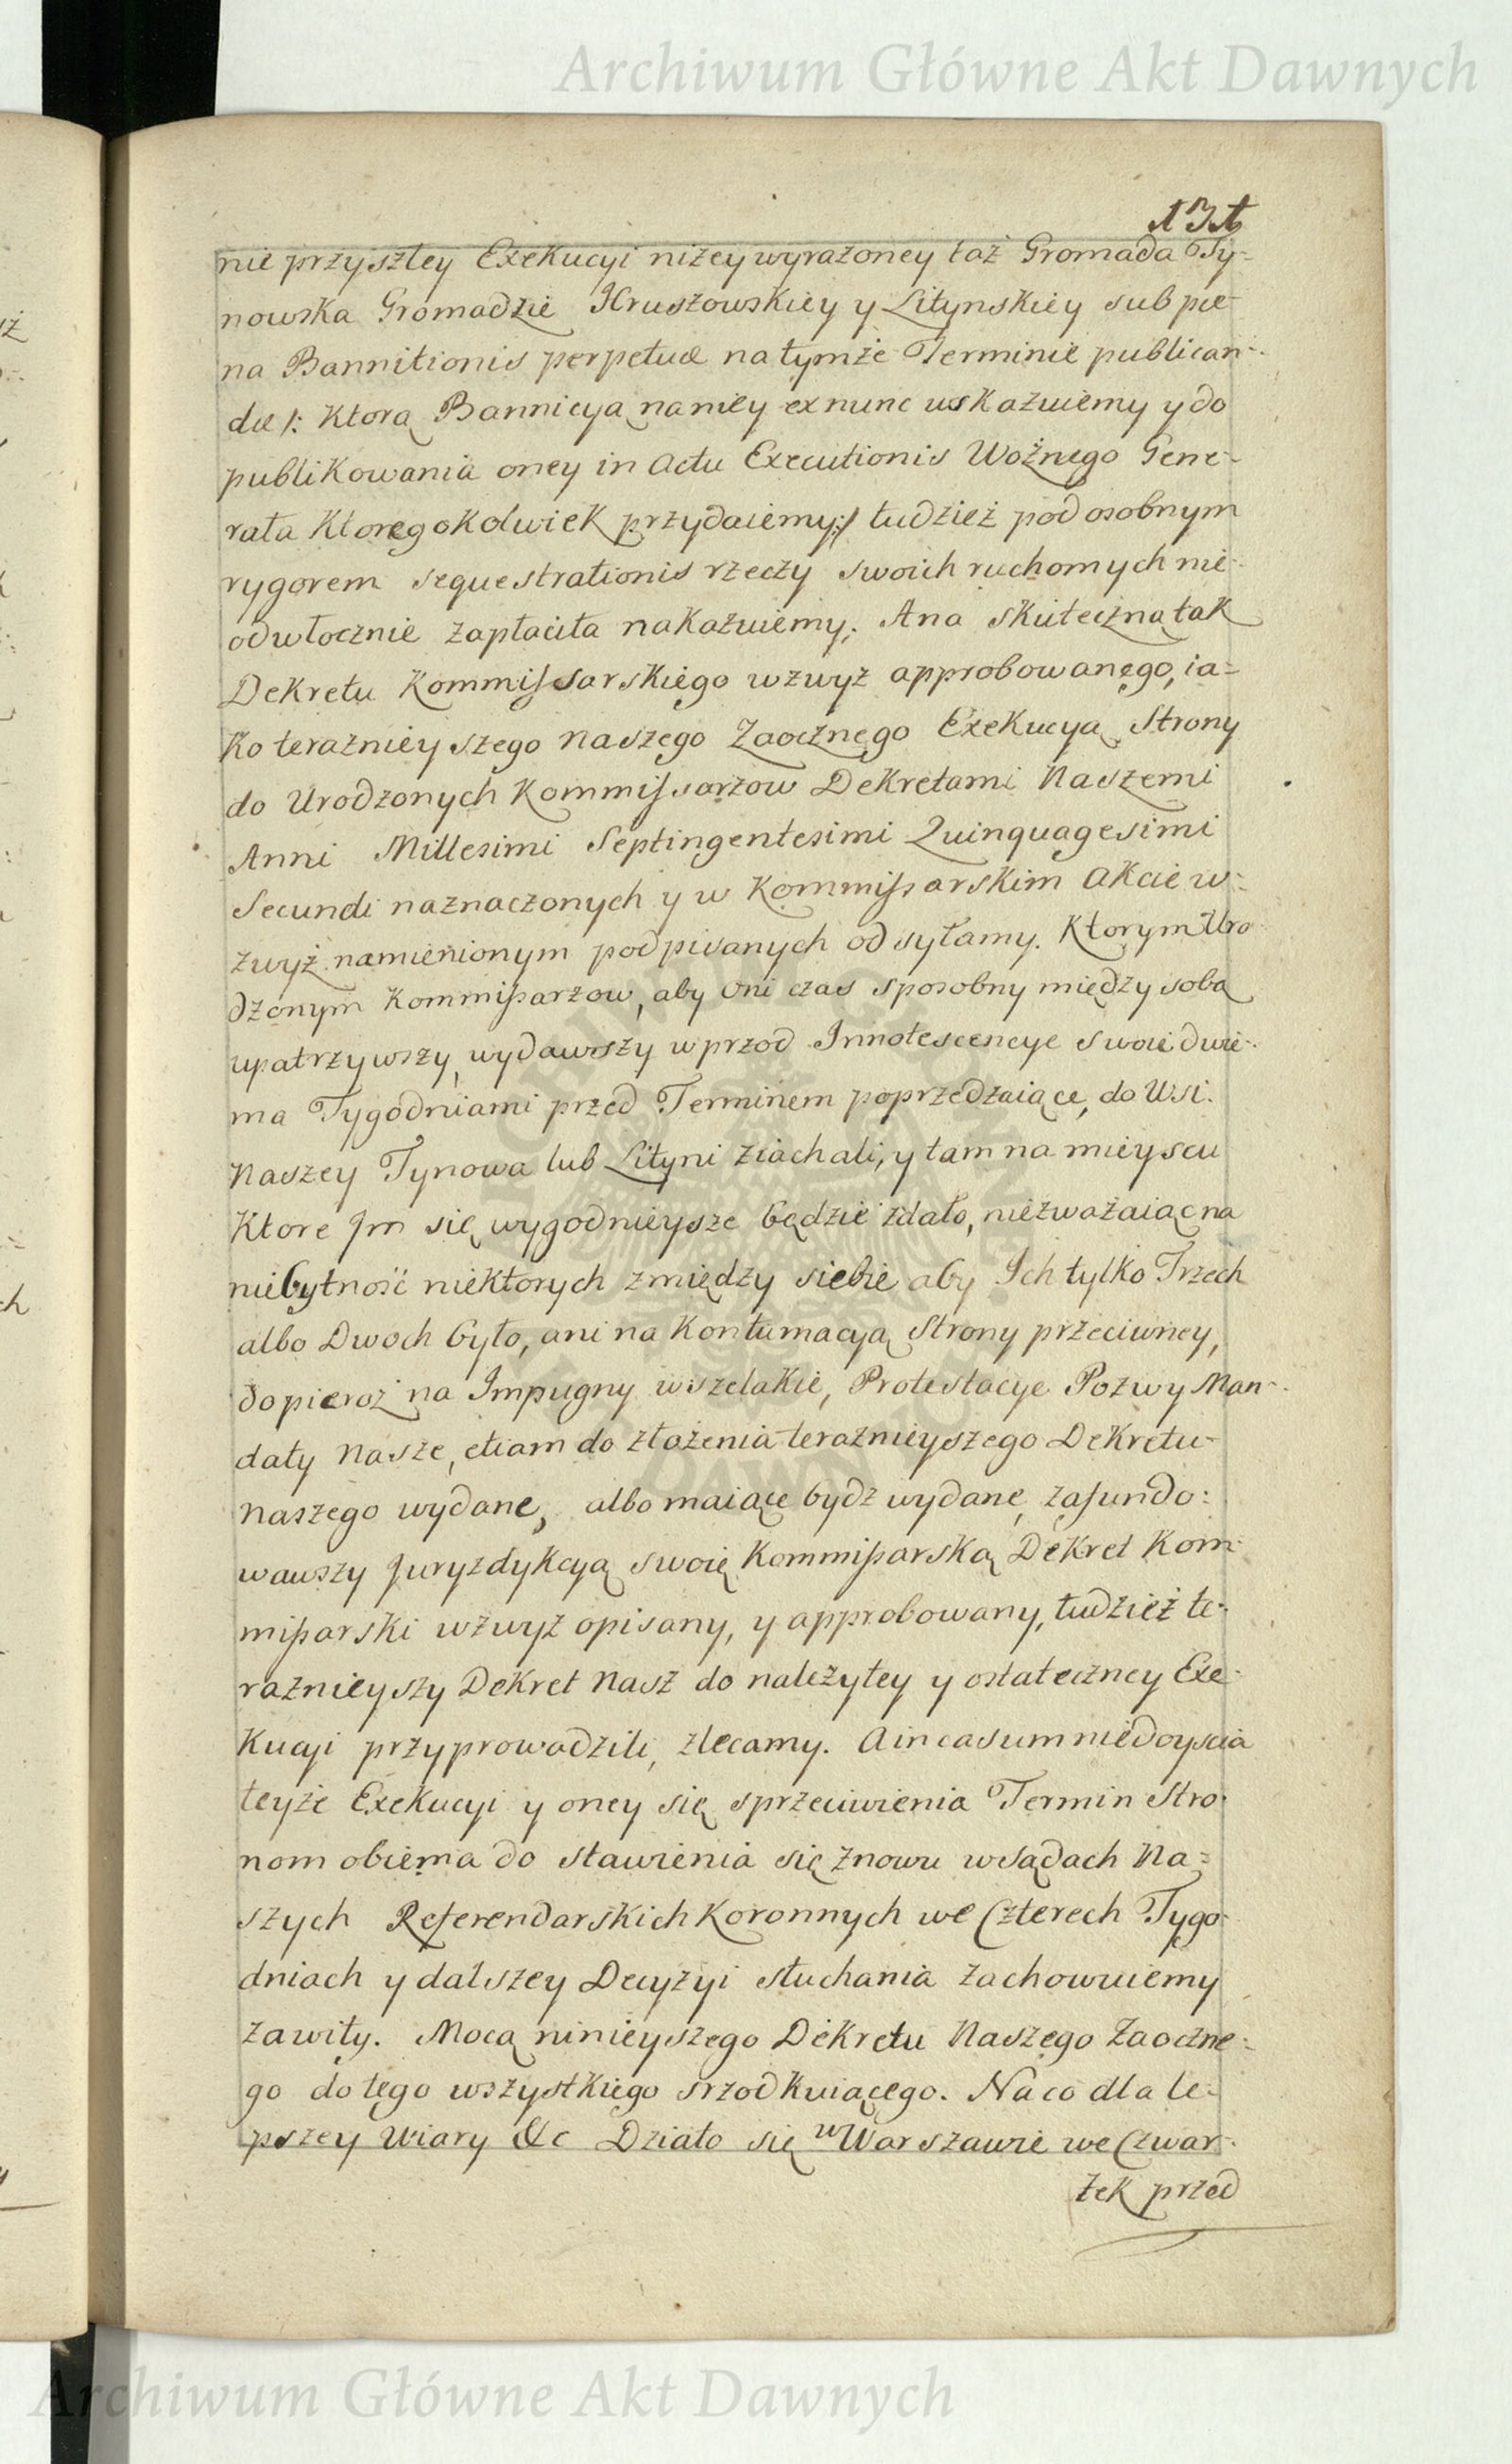 Archiwum Główne Akt Dawnych
nie przyszłey Exekucyi niżey wyrażoney taż Gromada Ty-
nowska Gromadzie Hruszowskiey y Litynskiey sub poe-
na Bannitionis perpetuæ na tymże Terminie publican-
dæ /: Ktorą Bannicyą na niey ex nunc wskazuiemy y do
publikowania oney in Actu Executionis Woźnego Gene-
rała Ktoregokolwiek przydaiemy :/ tudzież pod osobnym
rygorem sequestrationis rzeczy swoich ruchomych nie-
odwłocznie zapłaciła nakazuiemy; A na skuteczną tak
Dekretu Kommissarskiego wzwyż approbowanego, ia=
ko teraznieyszego Naszego Zaocznego Exekucyą Strony
do Urodzonych Kommissarzow Dekretami Naszemi
Anni Millesimi Septingentesimi Quinquagesimi
Secundi naznaczonych y w Kommissarskim Akcie w-
zwyż namienionym podpisanych odsyłamy. Ktorym Uro
dzonym Kommissarzow, aby Oni czas sposobny między sobą
upatrzywszy, wydawszy wprzod Innotescencye swoie dwie-
ma Tygodniami przed Terminem poprzedzaiące, do Wsi
Naszey Tynowa lub Lityni ziachali, y tam na mieyscu
Ktore Im się wygodnieysze będzie zdało, nieżważaiąc na
niebytność niektorych zmiędzy siebie aby Ich tylko Trzech
albo Dwoch było, ani na Kontumacyą Strony przeciwney,
dopieroż na Impugny wszelakie, Protestacye Pozwy Man-
daty Nasze, etiam do złożenia teraznieyszego Dekretu
Naszego wydane, albo maiące bydz wydane, zafundo:
wawszy Juryzdykcyą swoię Kommissarską Dekret Kom-
missarski wzwyż opisany, y approbowany, tudzież te-
raznieyszy Dekret Nasz do należytey y ostateczney Exe-
kucyi przyprowadzili, zlecamy. A in casum niedoyscia
teyże Exekucyi y oney się sprzeciwienia Termin Stro-
nom obiema do stawienia się znowu w Sądach Na=
szych Referendarskich Koronnych we Czterech Tygo-
dniach y dalszey Decyzyi słuchania zachowuiemy
zawity. Mocą ninieyszego Dekretu Naszego Zaoczne-
go do tego wszystkiego srzodkuiącego. Na co dla le-
pszey Wiary &c Działo się w Warszawie we Czwar-
tek przed
Archiwum Główne Akt Dawnych